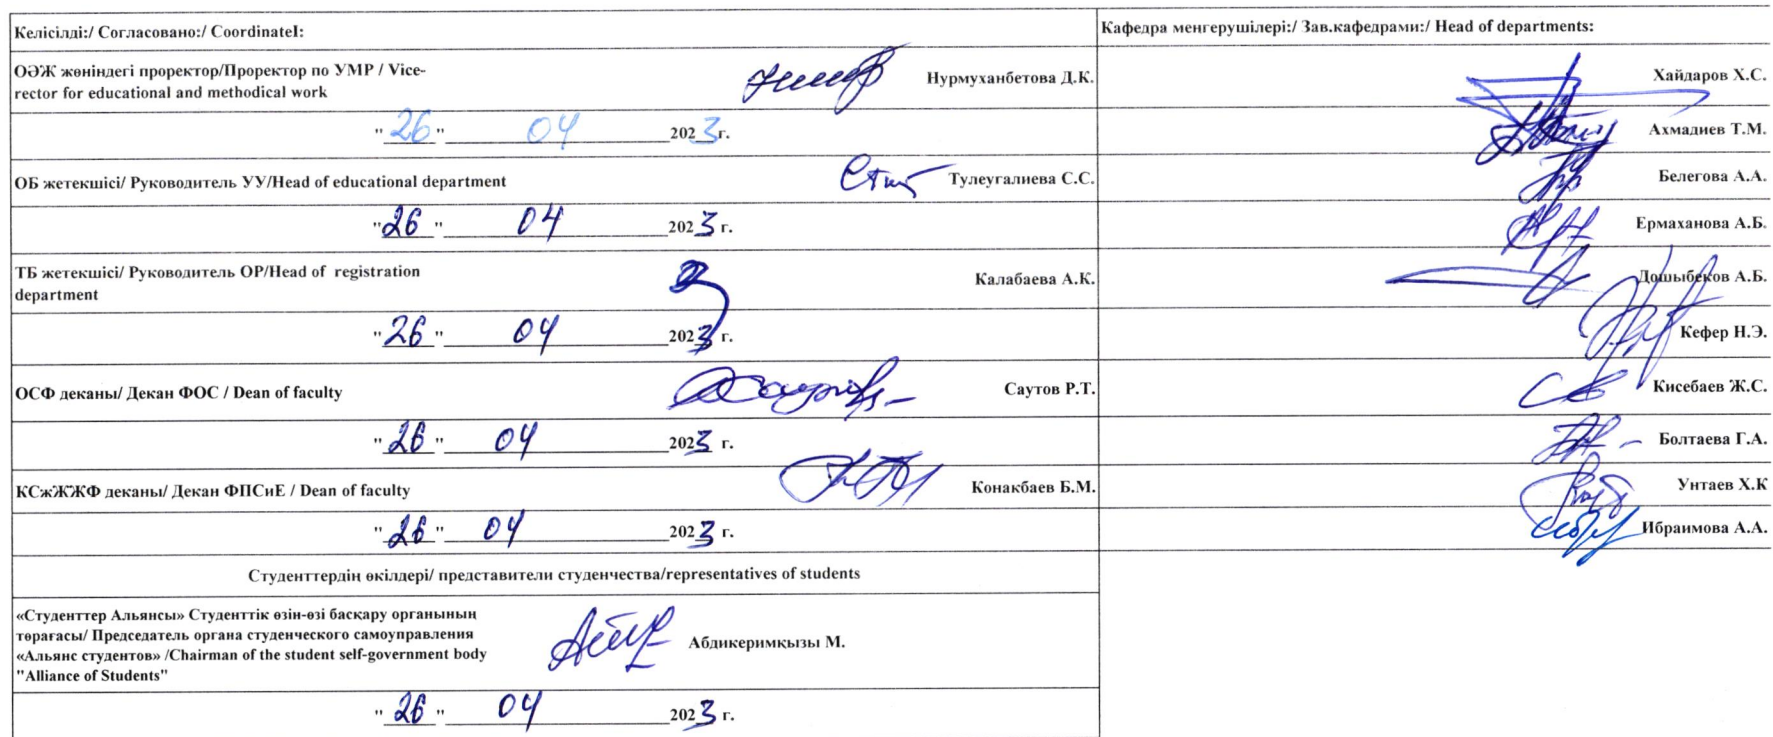 Келісілді:/ Согласовано:/ CoordinateI:
ОӘЖ жөніндегі проректор/Проректор по УМР / Vice-
rector for educational and methodical work
Нурмуханбетова Д.К.
"26" 04 2023г.
ОБ жетекшісі/ Руководитель УУ/Head of educational department
Тулеугалиева С.С.
"26" 04 2023 г.
ТБ жетекшісі/ Руководитель ОР/Head of registration
department
Калабаева А.К.
"26" 04 2023 г.
ОСФ деканы/ Декан ФОС / Dean of faculty
Саутов Р.Т.
"26" 04 2023 г.
КСжЖЖФ деканы/ Декан ФПСиЕ / Dean of faculty
Конакбаев Б.М.
"26" 04 2023 г.
Студенттердің өкілдері/ представители студенчества/representatives of students
«Студенттер Альянсы» Студенттік өзін-өзі басқару органының
төрағасы/ Председатель органа студенческого самоуправления
«Альянс студентов» /Chairman of the student self-government body
"Alliance of Students"
Абдикеримқызы М.
"26" 04 2023 г.
Кафедра меңгерушілері:/ Зав.кафедрами:/ Head of departments:
Хайдаров Х.С.
Ахмадиев Т.М.
Белегова А.А.
Ермаханова А.Б.
Дошыбеков А.Б.
Кефер Н.Э.
Кисебаев Ж.С.
Болтаева Г.А.
Унтаев Х.К
Ибраимова А.А.